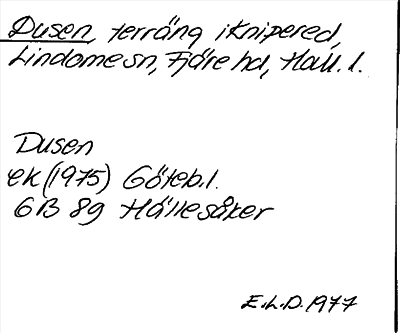 Dusen, terräng i Knipered,
Lindome sn, Fjäre hd, Hall. l.
Dusen
ek (1975) Göteb. l.
6B 8g Hällesåker
E.L.D. 1977